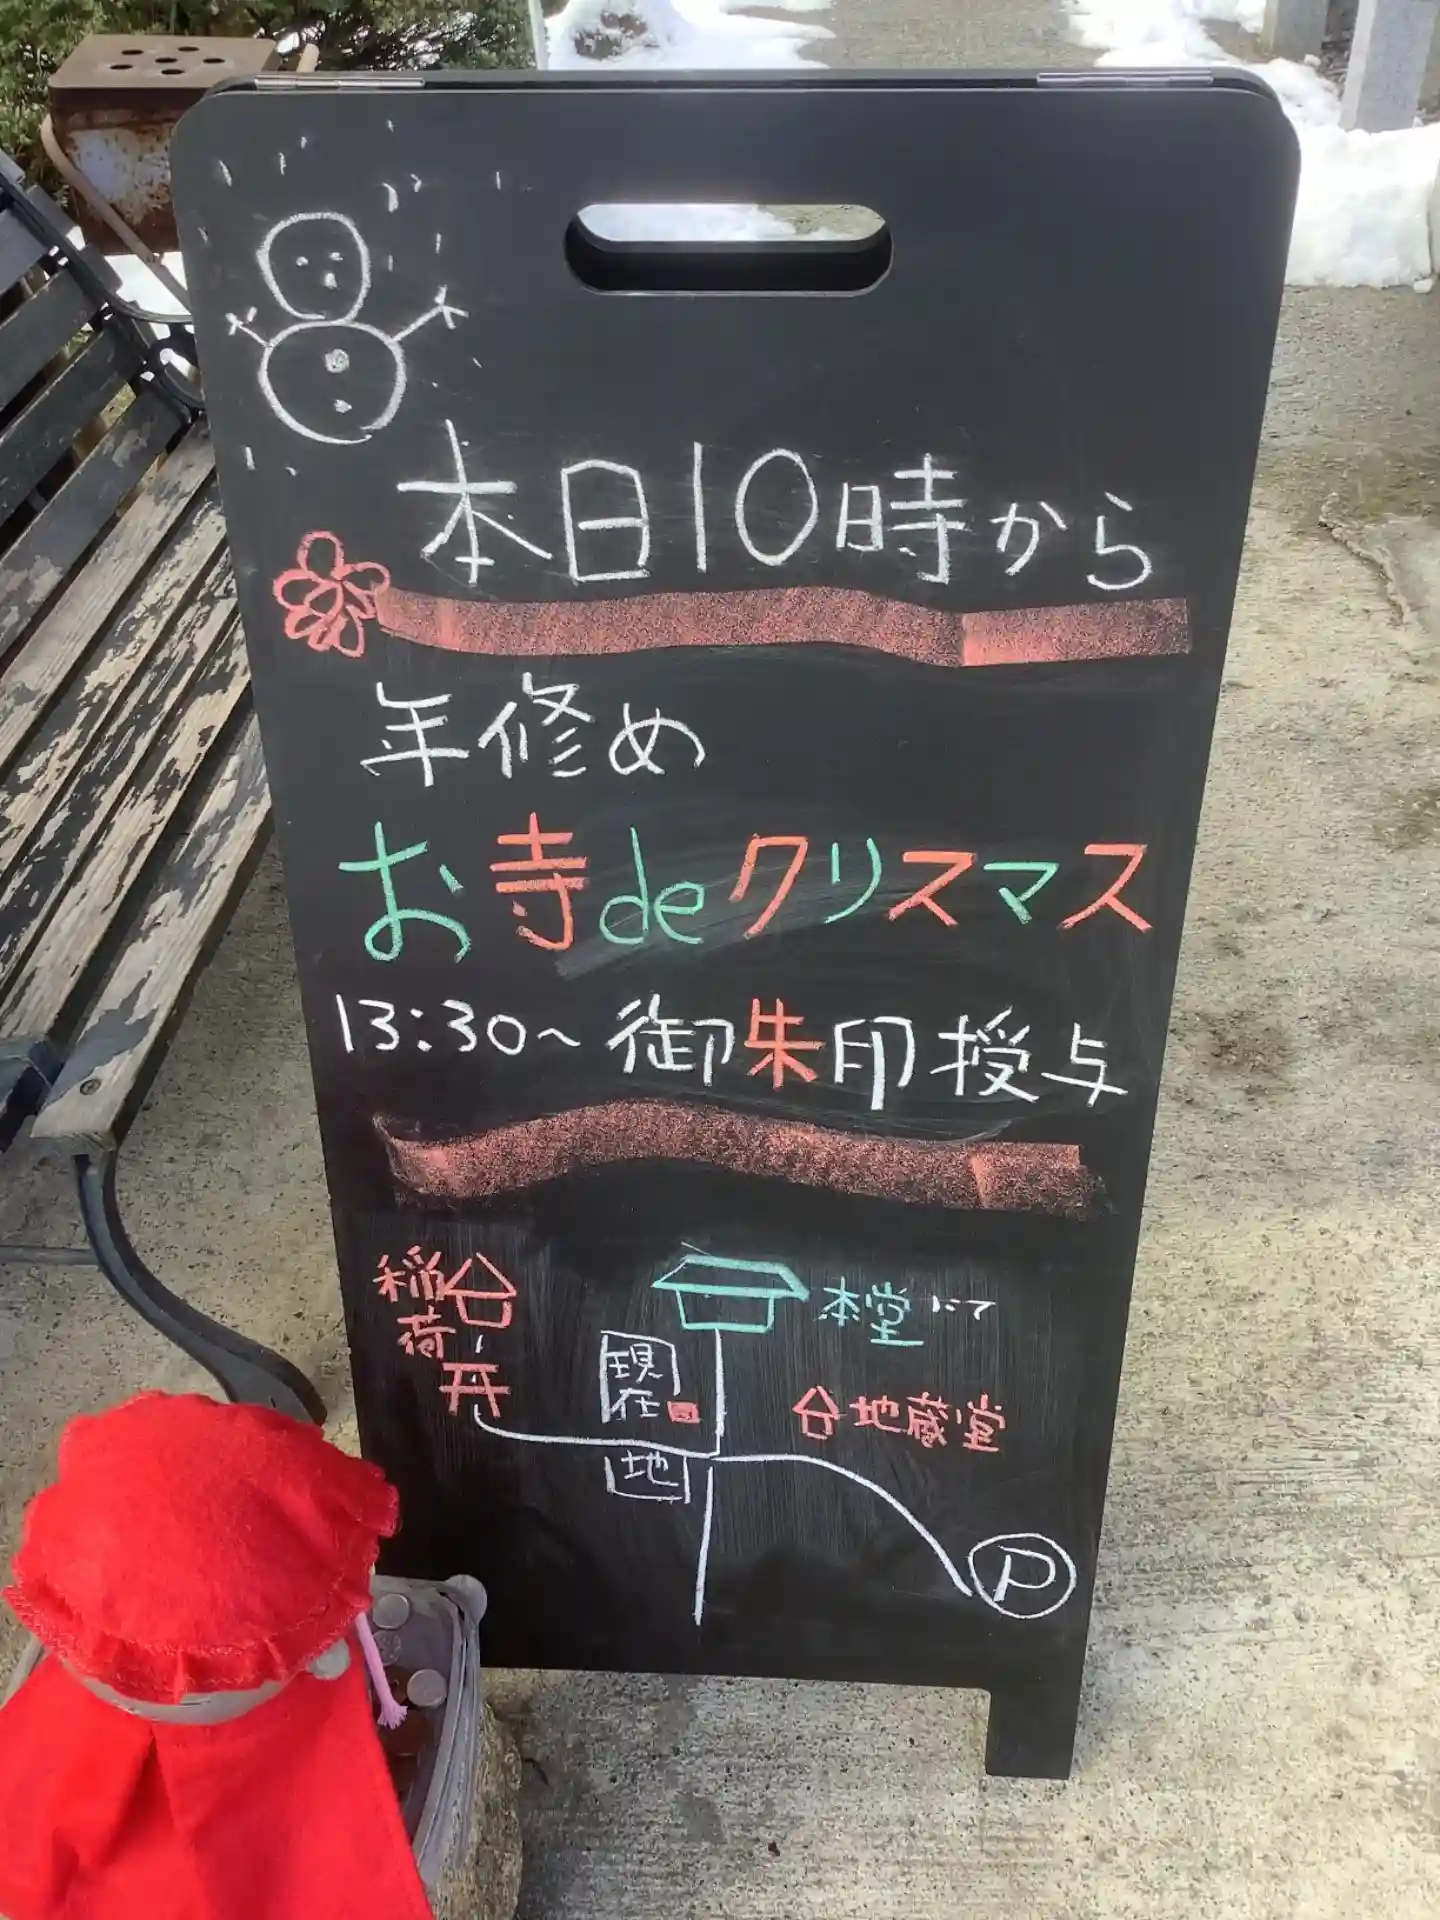 本日10時から
年修め
お寺deクリスマス
13:30〜御朱印授与
稲荷
本堂にて
現在地
地蔵堂
P